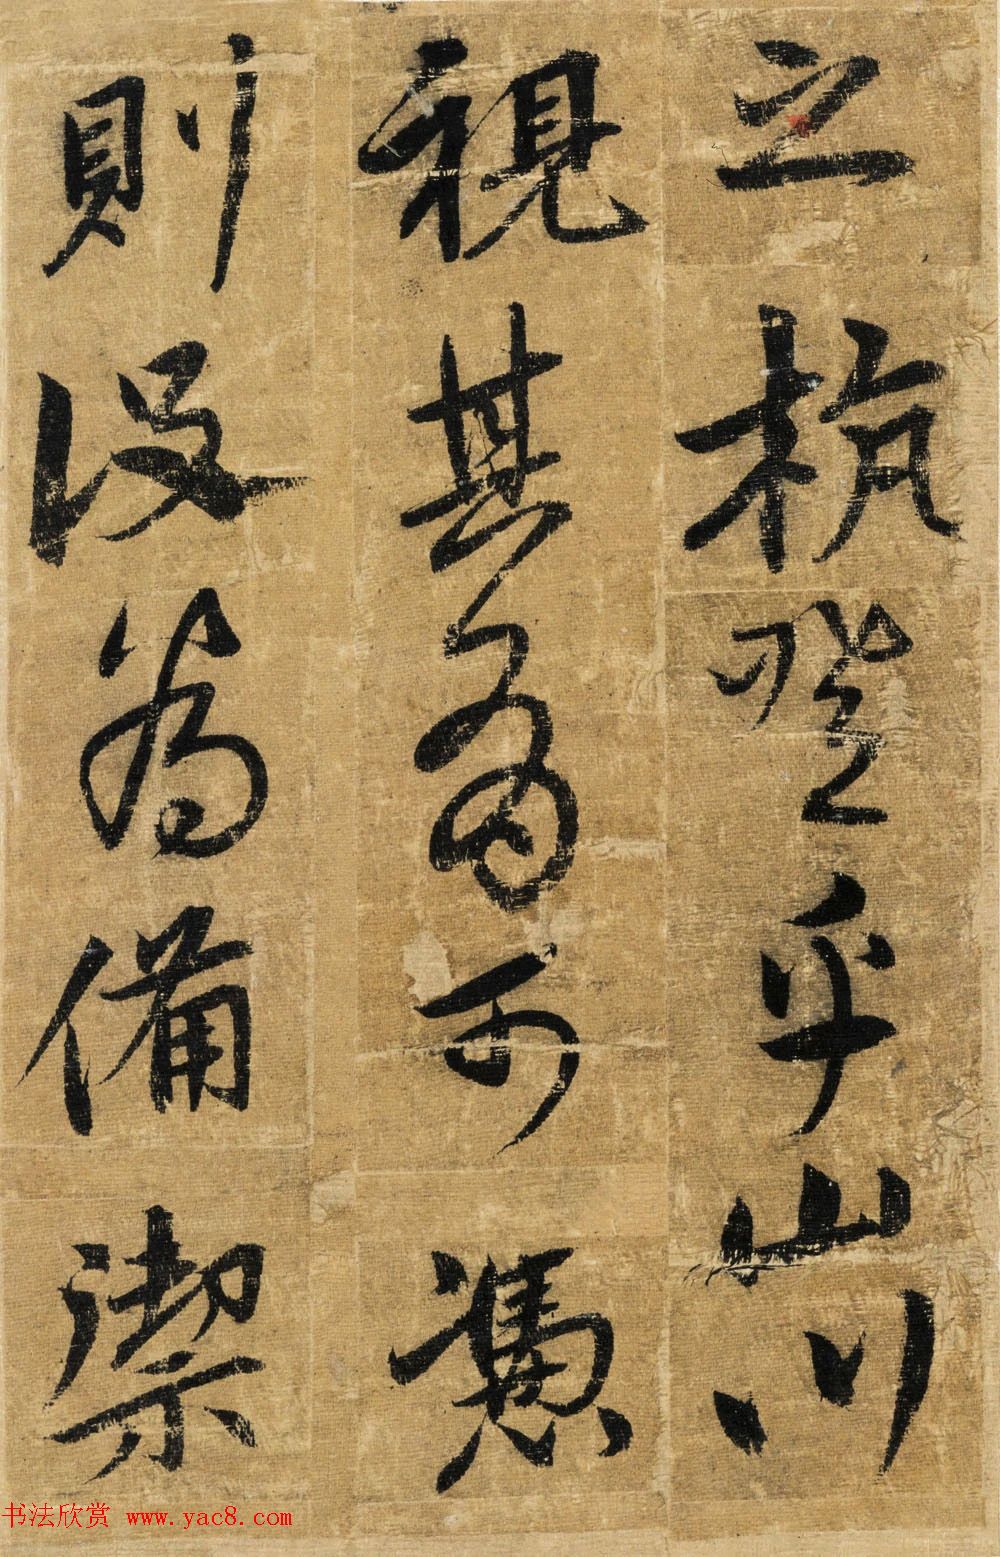 之杭登乎山川
視其高可憑
則設為備禦
书法欣赏 www.yac8.com